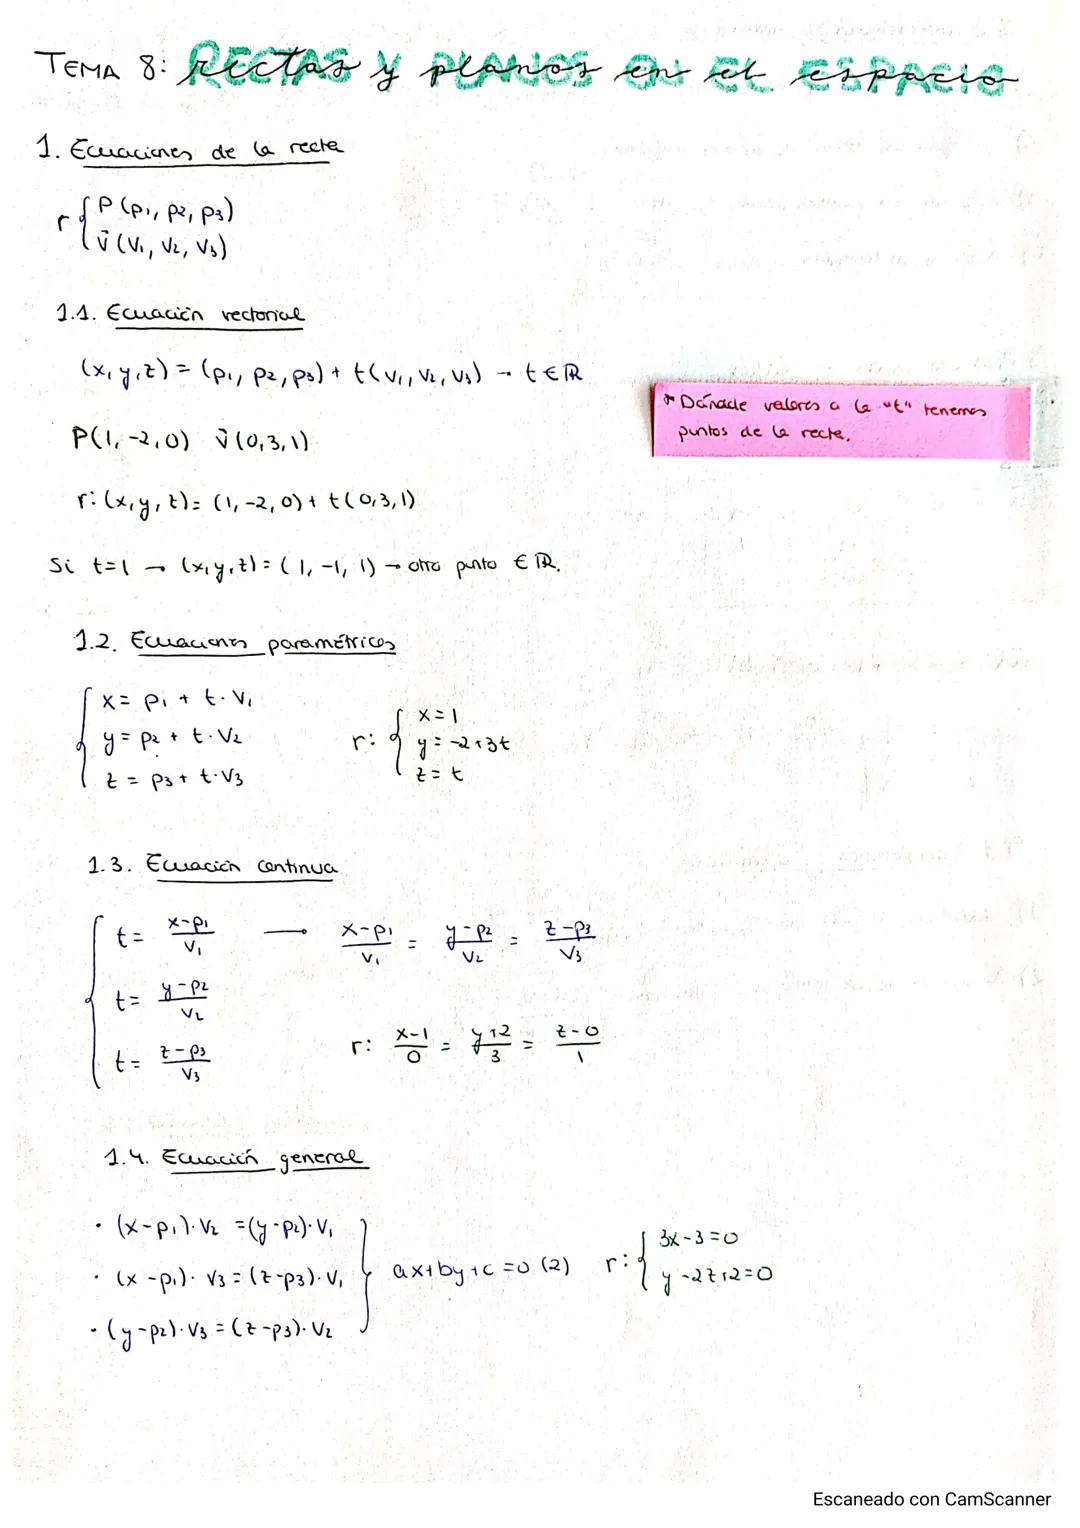 TEMA 8: RECTAS y PLANOS EN EL ESPACIO
1. Ecuaciones de la recta
r { P (p1, p2, p3)
v⃗ (v1, v2, v3)
1.1. Ecuación vectorial
(x, y, z) = (p1, p2, p3) + t(v1, v2, v3) → t ∈ ℝ
* Dándole valores a la "t" tenemos
puntos de la recta.
P(1, -2, 0) v⃗ (0, 3, 1)
r: (x, y, z) = (1, -2, 0) + t(0, 3, 1)
Si t=1 → (x, y, z) = (1, -1, 1) → otro punto ∈ ℝ.
1.2. Ecuaciones paramétricas
x = p1 + t · v1
y = p2 + t · v2
z = p3 + t · v3
r: { x = 1
y = -2+3t
z = t
1.3. Ecuación continua
t = (x-p1)/v1 → (x-p1)/v1 = (y-p2)/v2 = (z-p3)/v3
t = (y-p2)/v2
t = (z-p3)/v3
r: (x-1)/0 = (y+2)/3 = (z-0)/1
1.4. Ecuación general
· (x-p1) · v2 = (y-p2) · v1
· (x-p1) · v3 = (z-p3) · v1 } ax+by+c=0 (2) r: { 3x-3=0
y-2z+2=0
· (y-p2) · v3 = (z-p3) · v2
Escaneado con CamScanner